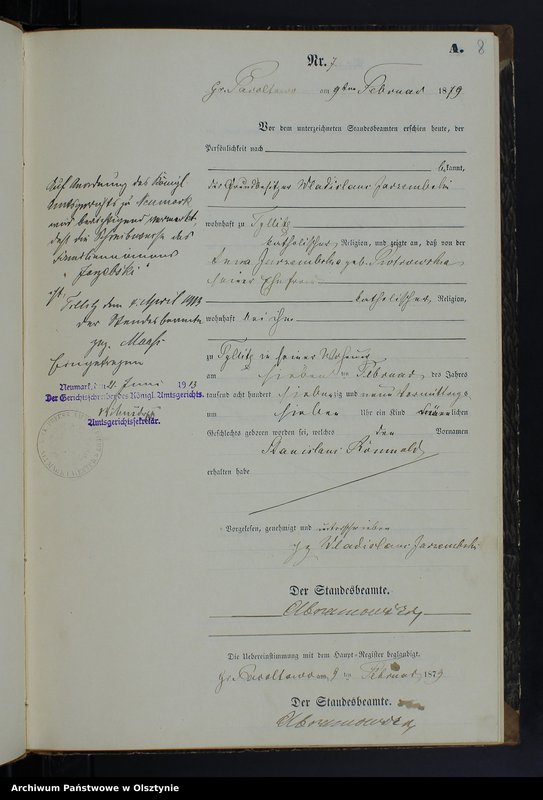 A. 8
Nr. 7
Gr. Pacoltowo am 9ten Februar 1879
Vor dem unterzeichneten Standesbeamten erschien heute, der
Persönlichkeit nach
bekannt,
der Grundbesitzer Wladislaus Jarzembski
wohnhaft zu Tyllitz
katholischer Religion, und zeigte an, daß von der
Anna Jarzembska geb. Piotrowska
seiner Ehefrau
katholischer Religion,
wohnhaft bei ihm
zu Tyllitz in seiner Wohnung
am sieben ten Februar des Jahres
tausend acht hundert siebenzig und neun Vormittags
um sieben Uhr ein Kind männlichen
Geschlechts geboren worden sei, welches den Vornamen
Stanislaus Romuald
erhalten habe
Vorgelesen, genehmigt und unterschrieben
gez. Wladislaus Jarzembski
Der Standesbeamte.
Die Uebereinstimmung mit dem Haupt-Register beglaubigt.
Gr. Pacoltowo am 9 ten Februar 1879
Der Standesbeamte.
Auf Anordnung des Königl.
Amtsgerichts zu Neumark
wird berichtigend vermerkt
daß die Schreibweise des
Familiennamens
"Jarzebski"
ist.
Tillitz den 8. April 1913
Der Standesbeamte
gez. Maaß
Eingetragen
Neumark, den 4. Juni 1913
Der Gerichtsschreiber des Königl. Amtsgerichts.
Amtsgerichtssekretär.
Archiwum Państwowe w Olsztynie